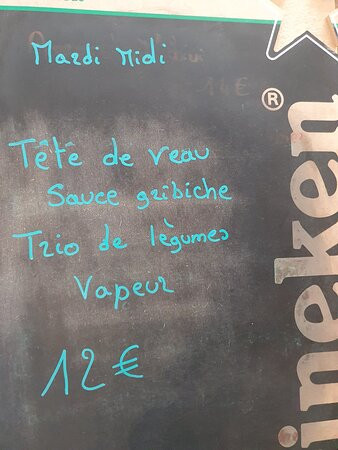 Mardi Midi
14€
Tête de veau
Sauce gribiche
Trio de légumes
Vapeur
12€
ineken®